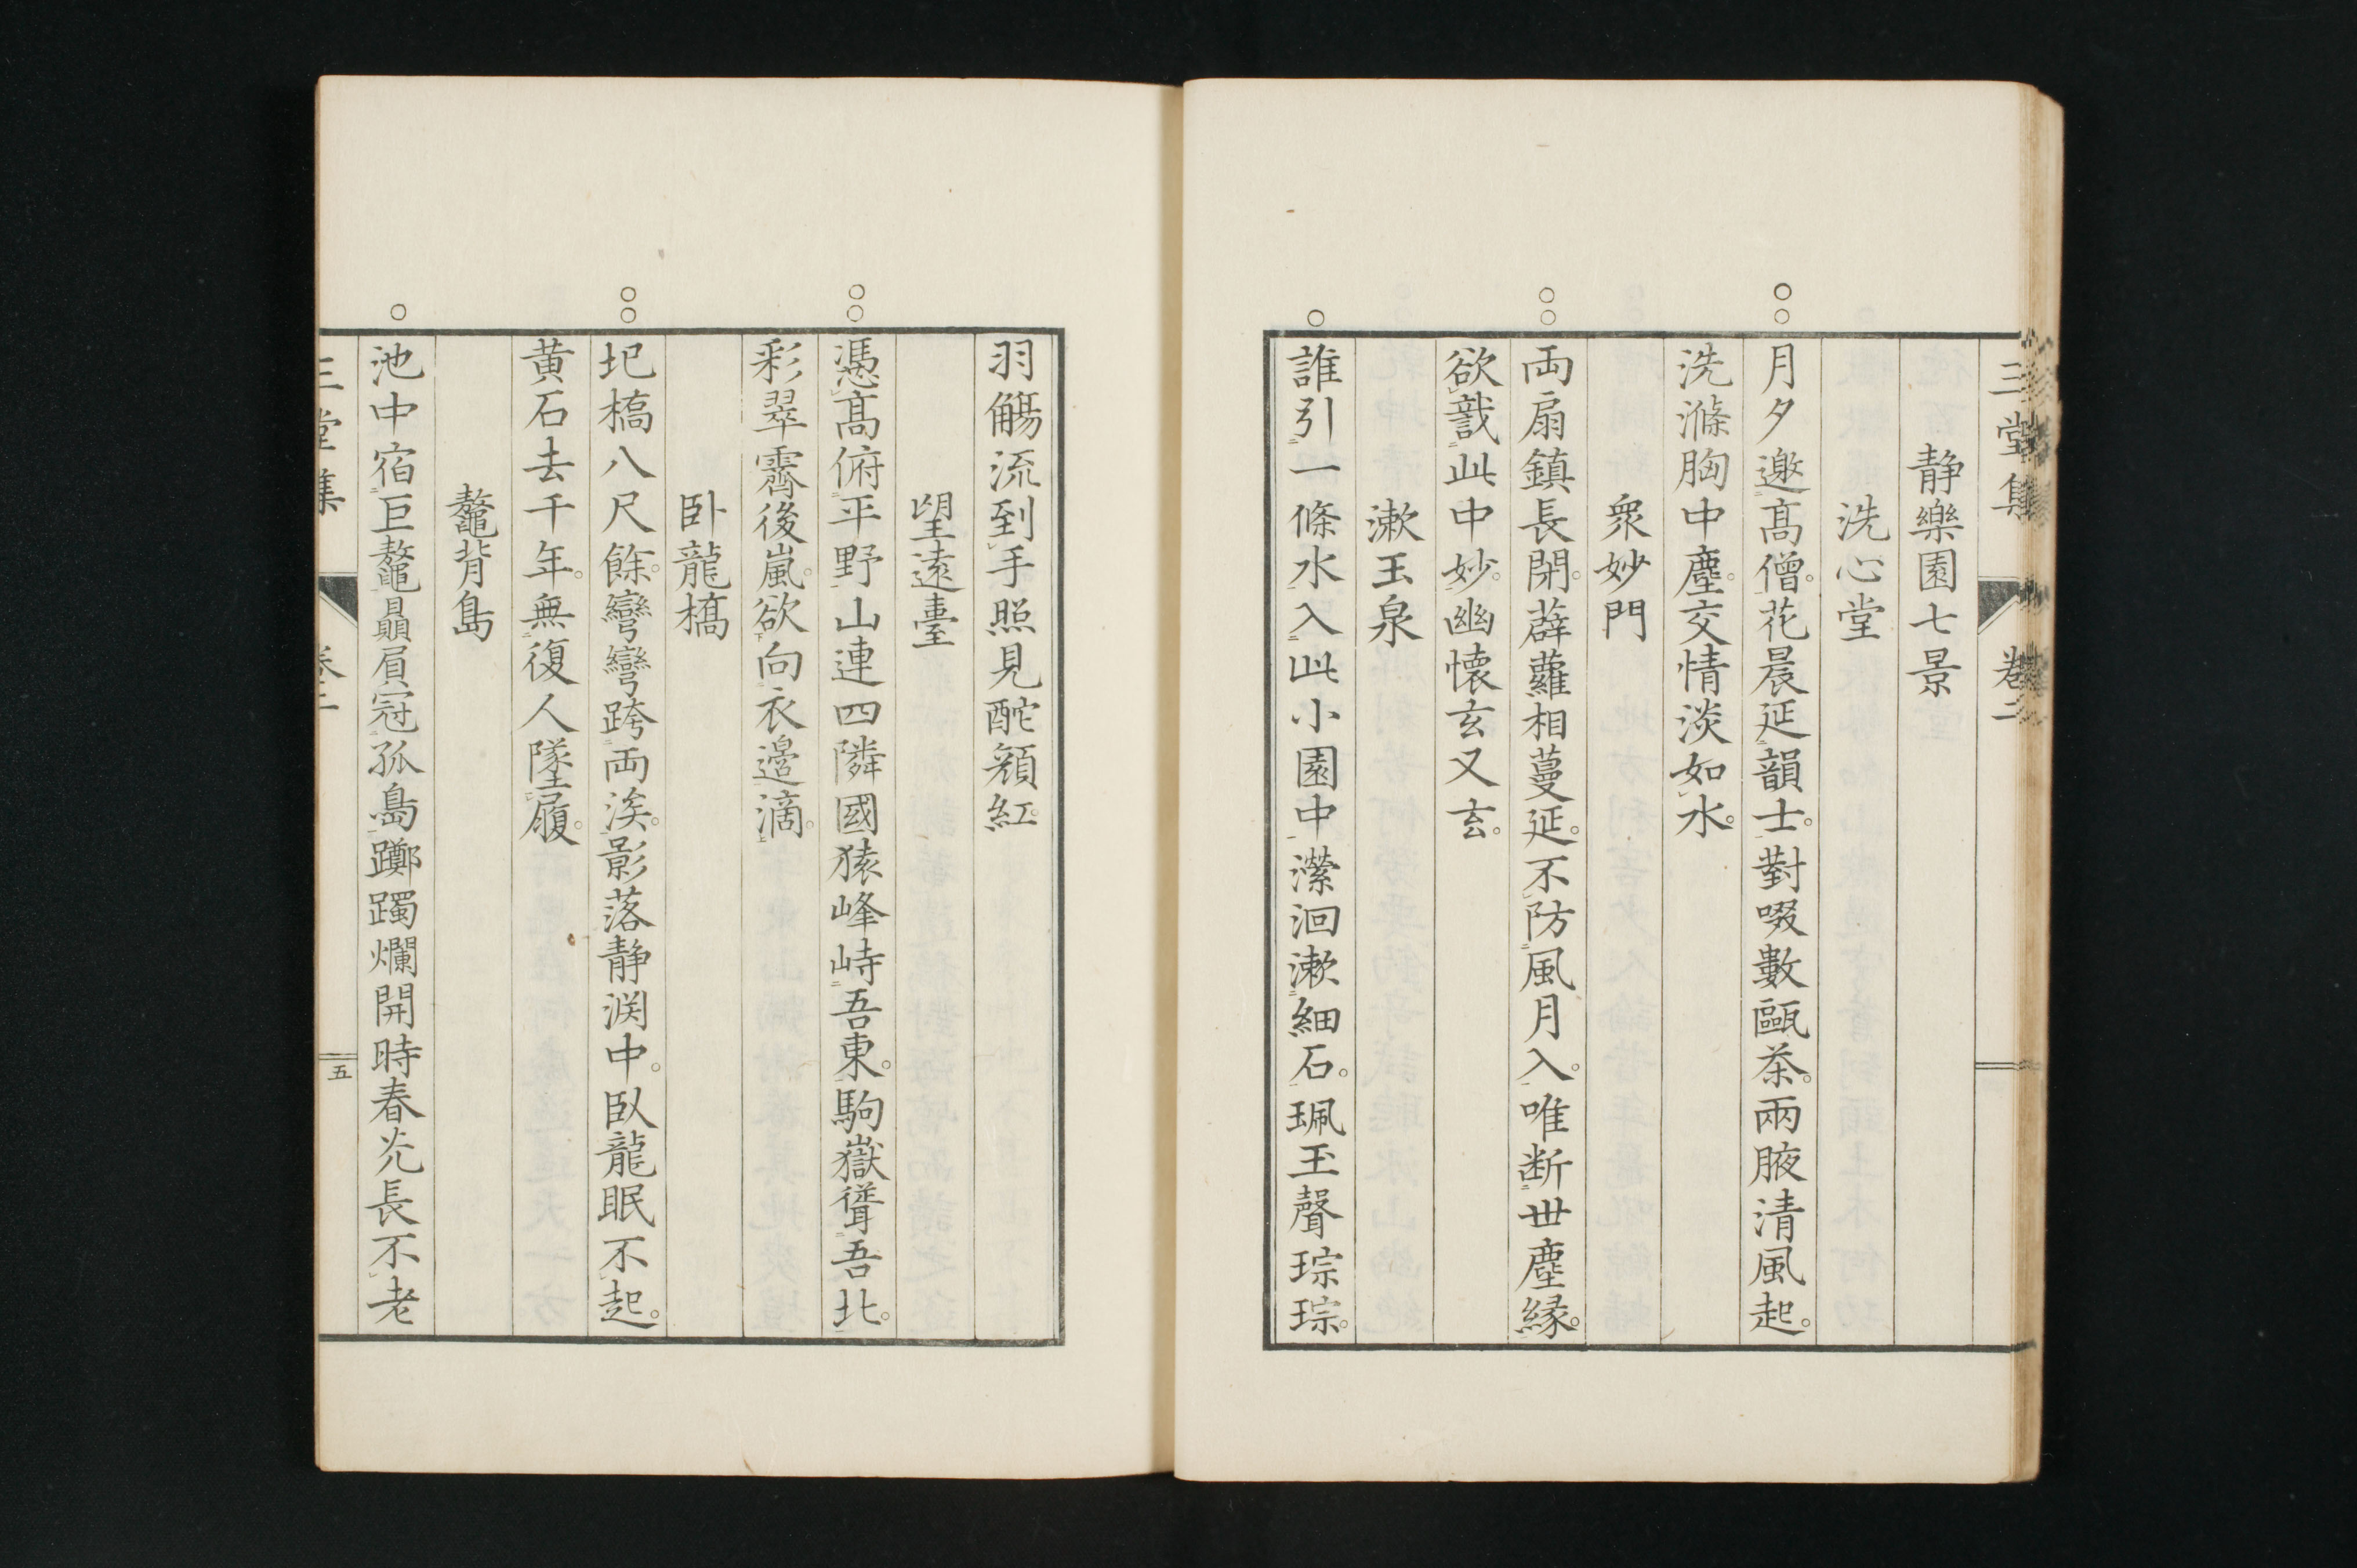 三堂集 卷二
靜樂園七景
洗心堂
月夕邀高僧。花晨延韻士。對啜數甌茶。兩腋清風起。
洗滌胸中塵。交情淡如水。
衆妙門
両扇鎮長閉。薜蘿相蔓延。不防風月入。唯断世塵縁。
欲識此中妙。幽懷玄又玄。
漱玉泉
誰引一條水入此小園中瀠洄漱細石。珮玉聲琮琮。
羽觴流到手照見酡顔紅。
望遠臺
憑高俯平野山連四隣國猿峰峙吾東。駒嶽聳吾北。
彩翠霽後嵐。欲向衣邊滴。
卧龍橋
圯橋八尺餘。彎彎跨両涘。影落静渕中。臥龍眠不起。
黄石去千年。無復人墜履。
鼇背島
池中宿巨鼇贔屓冠孤島躑躅爛開時春光長不老
三堂集 卷二 五